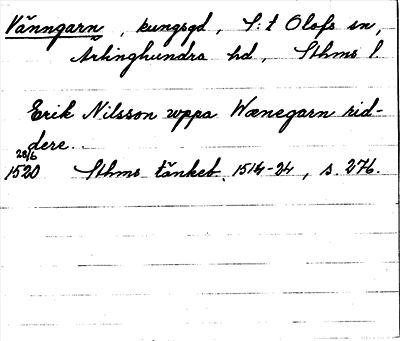 Vänngarn, kungsgd, S:t Olofs sn,
Ärlinghundra hd, Sthms l
Erik Nilsson uppa Wænegarn rid-
dere.
28/6
1520 Sthms tänkeb. 1514-24, s. 276.